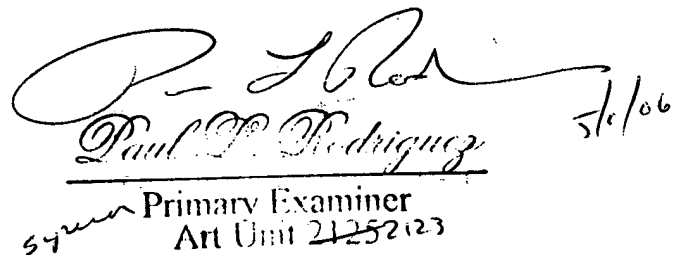 5/1/06
Paul Rodriguez
Primary Examiner
Art Unit 2125 2123